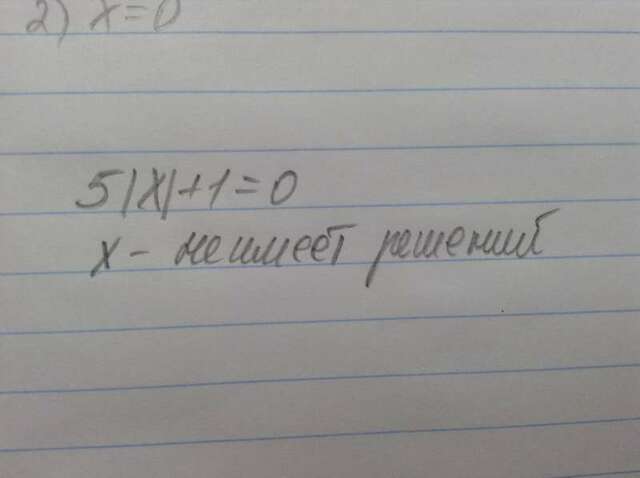 2) x=0
5|x|+1=0
x - не имеет решений